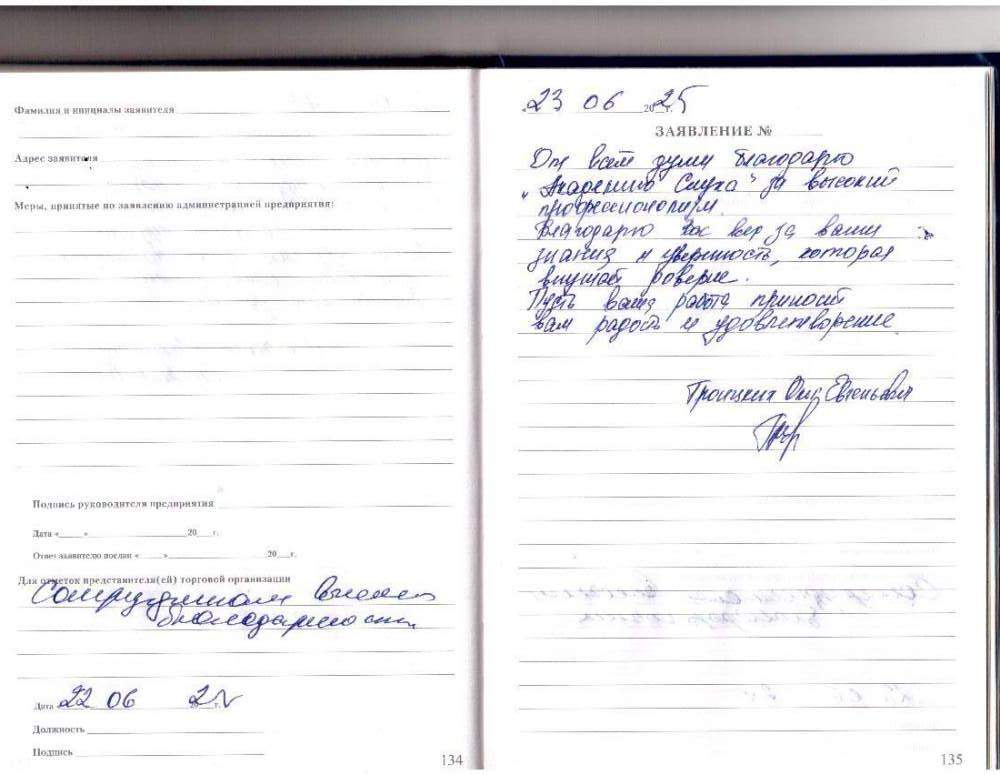 Фамилия и инициалы заявителя
Адрес заявителя
Меры, принятые по заявлению администрацией предприятия:
Подпись руководителя предприятия
Дата «____»____20__г.
Ответ заявителю послан «____»____20__г.
Для отметок представителя(ей) торговой организации
Сотрудникам вынесена
благодарность
Дата 22 06 20 г.
Должность
Подпись
134
«23 06 2025 г.
ЗАЯВЛЕНИЕ №
От всей души благодарю
"Академию Слуха" за высокий
профессионализм.
Благодарю вас всех за ваши
знания и уверенность, которая
внушает доверие.
Пусть ваша работа приносит
вам радость и удовлетворение.
Евгеньевич
135